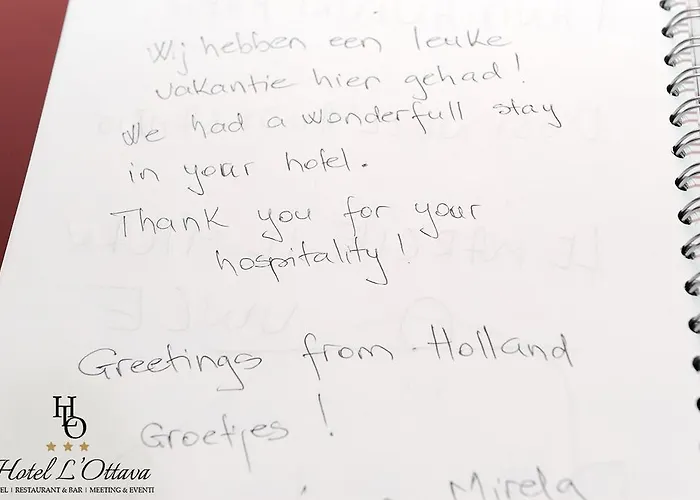 Wij hebben een leuke
vakantie hier gehad!
We had a wonderfull stay
in your hotel.
Thank you for your
hospitality!
Greetings from Holland
Groetjes!
Mirela
HLO
Hotel L'Ottava
EL | RESTAURANT & BAR | MEETING & EVENTI